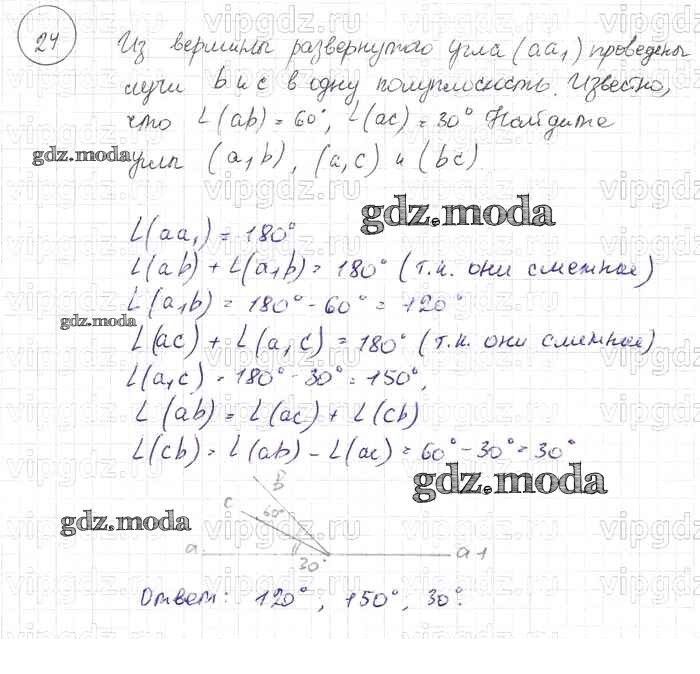 24
Из вершины развернутого угла (aa₁) проведены
лучи b и c в одну полуплоскость. Известно,
что ∠(ab) = 60°, ∠(ac) = 30° Найдите
углы (a₁b), (a₁c) и (bc).
gdz.moda
gdz.moda
∠(aa₁) = 180°
∠(ab) + ∠(a₁b) = 180° (т.к. они смежные)
∠(a₁b) = 180° - 60° = 120°
gdz.moda
∠(ac) + ∠(a₁c) = 180° (т.к. они смежные)
∠(a₁c) = 180° - 30° = 150°,
∠(ab) = ∠(ac) + ∠(cb)
∠(cb) = ∠(ab) - ∠(ac) = 60° - 30° = 30°
gdz.moda
b
c 60°
gdz.moda
a a1
30°
Ответ: 120°, 150°, 30°.
vipgdz.ru